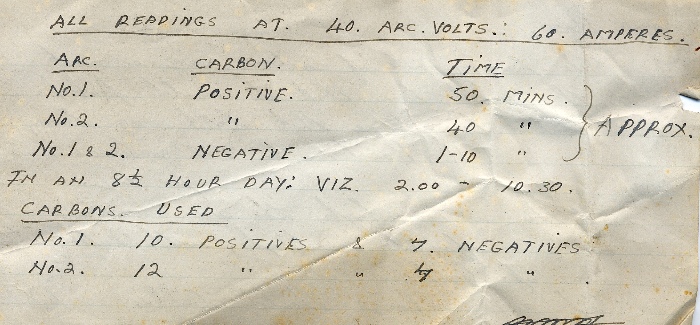 ALL READINGS AT. 40. ARC. VOLTS.: 60. AMPERES.
ARC. CARBON. TIME
No.1. POSITIVE. 50. MINS.
No.2. " 40 " APPROX.
No.1 & 2. NEGATIVE. 1-10 "
IN AN 8½ HOUR DAY: VIZ. 2.00 - 10.30.
CARBONS. USED
No.1. 10. POSITIVES & 7. NEGATIVES
No.2. 12 " " 7 "